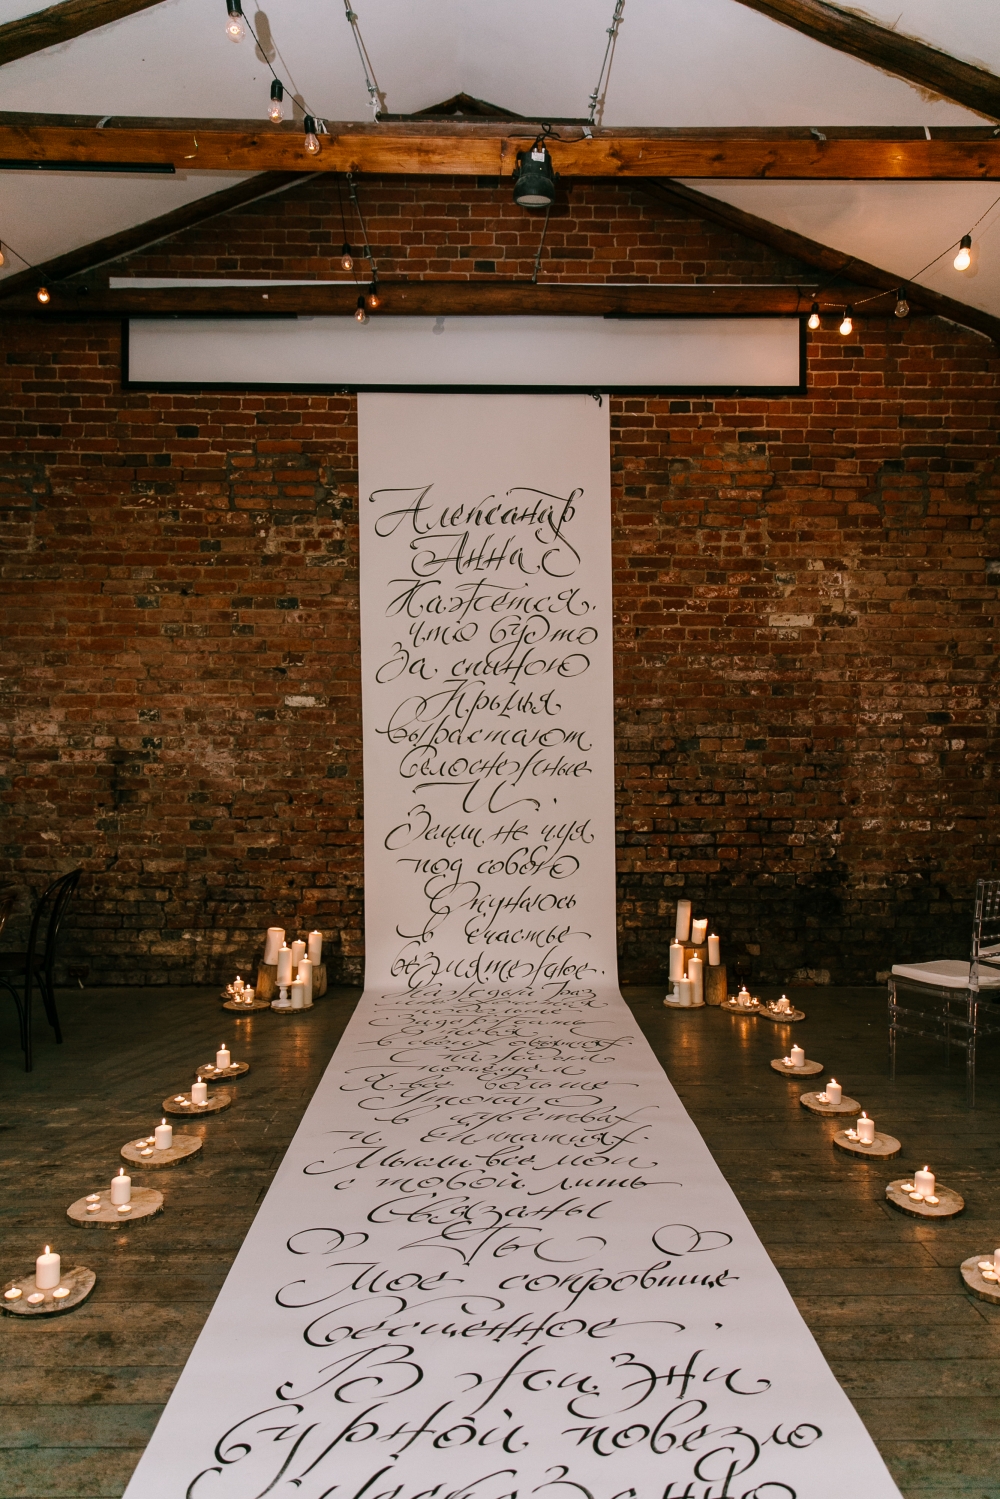 Александр
Анна
Кажется,
что будто
За спиною
Крылья
вырастают
белоснежные
И
Земли не чуя
под собою
Окунаюсь
в счастье
безмятежное.
Каждый раз
Задержать
тебя
в своих объятьях
С каждым
поцелуем
Я все больше
Утопаю
в чувствах
и симпатиях.
Мысли все мои
с тобой лишь
связаны
Ты
Мое сокровище
бесценное
В жизни
бурной повезло